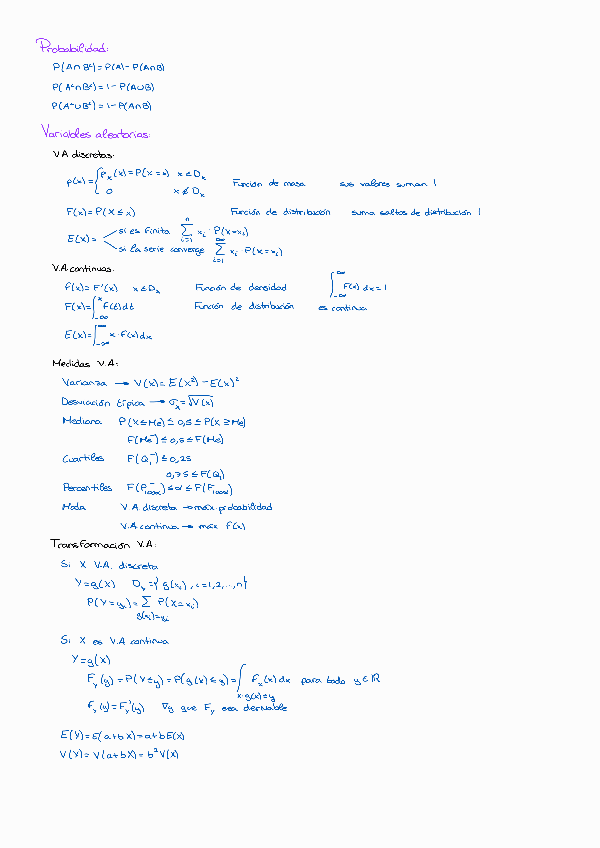 Probabilidad:
P(A∩Bᶜ)=P(A)-P(A∩B)
P(Aᶜ∩Bᶜ)=1-P(A∪B)
P(Aᶜ∪Bᶜ)=1-P(A∩B)
Variables aleatorias:
V.A discretas:
p(x)={ Pₓ(x)=P(X=x) x∈Dₓ
0 x∉Dₓ Función de masa sus valores suman 1
F(x)=P(X≤x) Función de distribución suma saltos de distribución 1
E(X)= si es finita ∑ᵢ₌₁ⁿ xᵢ·P(X=xᵢ)
si la serie converge ∑ᵢ₌₁^∞ xᵢ·P(X=xᵢ)
V.A continuas:
f(x)=F'(x) x∈Dₓ Función de densidad ∫₋∞^∞ f(x)dx=1
F(x)=∫₋∞ˣ f(t)dt Función de distribución es continua
E(X)=∫₋∞^∞ x·f(x)dx
Medidas V.A:
Varianza → V(X)=E(X²)-E(X)²
Desviación típica → σₓ=√V(X)
Mediana P(X≤Me)≤0,5≤P(X≥Me)
F(Me⁻)≤0,5≤F(Me)
Cuartiles F(Q₁⁻)≤0,25
0,75≤F(Q₁)
Percentiles F(P₁₀₀α⁻)≤α≤F(P₁₀₀α)
Moda V.A discreta → máx probabilidad
V.A continua → máx f(x)
Transformación V.A:
Si X V.A. discreta
Y=g(X) Dᵧ={g(xᵢ), i=1,2,...,n}
P(Y=yᵢ)=∑ P(X=xᵢ)
g(xᵢ)=yᵢ
Si X es V.A continua
Y=g(X)
Fᵧ(y)=P(Y≤y)=P(g(X)≤y)=∫ Fₓ(x)dx para todo y∈ℝ
x·g(x)=y
fᵧ(y)=Fᵧ'(y) ∀y que Fᵧ sea derivable
E(Y)=E(a+bX)=a+bE(X)
V(Y)=V(a+bX)=b²V(X)